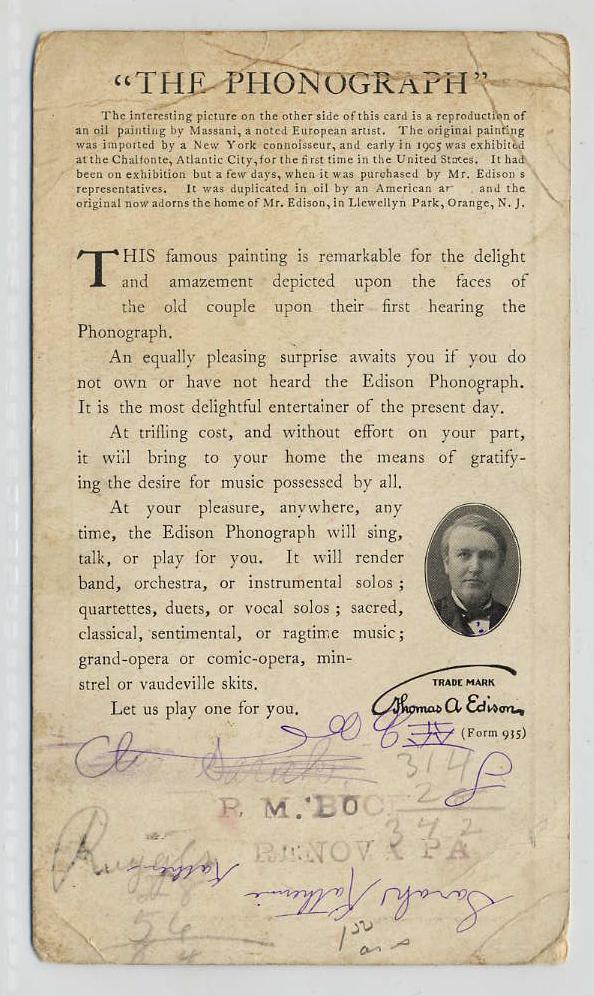 “THE PHONOGRAPH”
The interesting picture on the other side of this card is a reproduction of
an oil painting by Massani, a noted European artist. The original painting
was imported by a New York connoisseur, and early in 1905 was exhibited
at the Chalfonte, Atlantic City, for the first time in the United States. It had
been on exhibition but a few days, when it was purchased by Mr. Edison s
representatives. It was duplicated in oil by an American ar and the
original now adorns the home of Mr. Edison, in Llewellyn Park, Orange, N. J.
THIS famous painting is remarkable for the delight
and amazement depicted upon the faces of
the old couple upon their first hearing the
Phonograph.
An equally pleasing surprise awaits you if you do
not own or have not heard the Edison Phonograph.
It is the most delightful entertainer of the present day.
At trifling cost, and without effort on your part,
it will bring to your home the means of gratify-
ing the desire for music possessed by all.
At your pleasure, anywhere, any
time, the Edison Phonograph will sing,
talk, or play for you. It will render
band, orchestra, or instrumental solos ;
quartettes, duets, or vocal solos ; sacred,
classical, sentimental, or ragtime music ;
grand-opera or comic-opera, min-
strel or vaudeville skits.
Let us play one for you.
TRADE MARK
Thomas A Edison
(Form 935)
Sarah
314
2
342
R. M. BUC
RENOVA PA
Katherine
Sarah Katherine
56